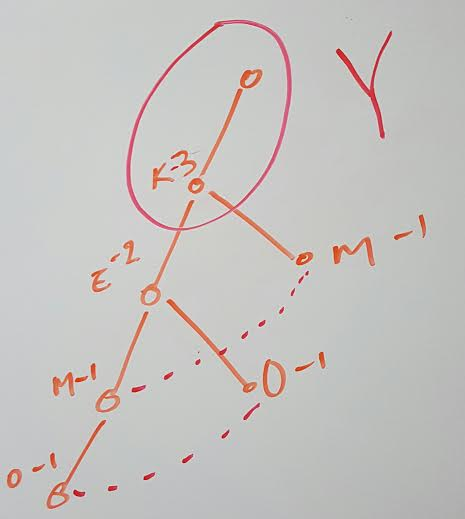 Y
K-3
M-1
E-2
M-1
O-1
O-1